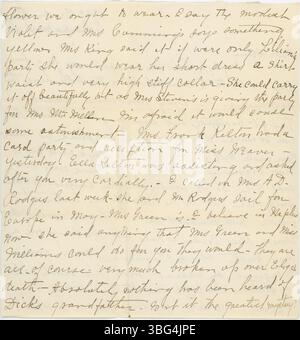 flower we ought to wear. I say the modest
Violet and Mrs Cummings says something
yellow. Mrs King said if it were only Lillian's
party she would wear her short dress a shirt
waist and very high stiff collar - She could carry
it off beautifully but as Mrs Stevens is giving the party
for Mrs I'm afraid it would cause
some astonishment. Mrs Frank had a
card party and reception for Miss Weaver
yesterday. Ella was and asked
after you very cordially. - I called on Mrs H.D.
Rodgers last week she and Mr Rodgers sail for
Europe in May. Mrs Green is I believe in Naples
now - she said anything that Mrs Green and Miss
Williams could do for you they would - They are
all of course very much broken up over
death - Absolutely nothing has been heard of
Dick's grandfather. isn't it the greatest mystery
alamy
Image ID: 3BG4JPE
www.alamy.com